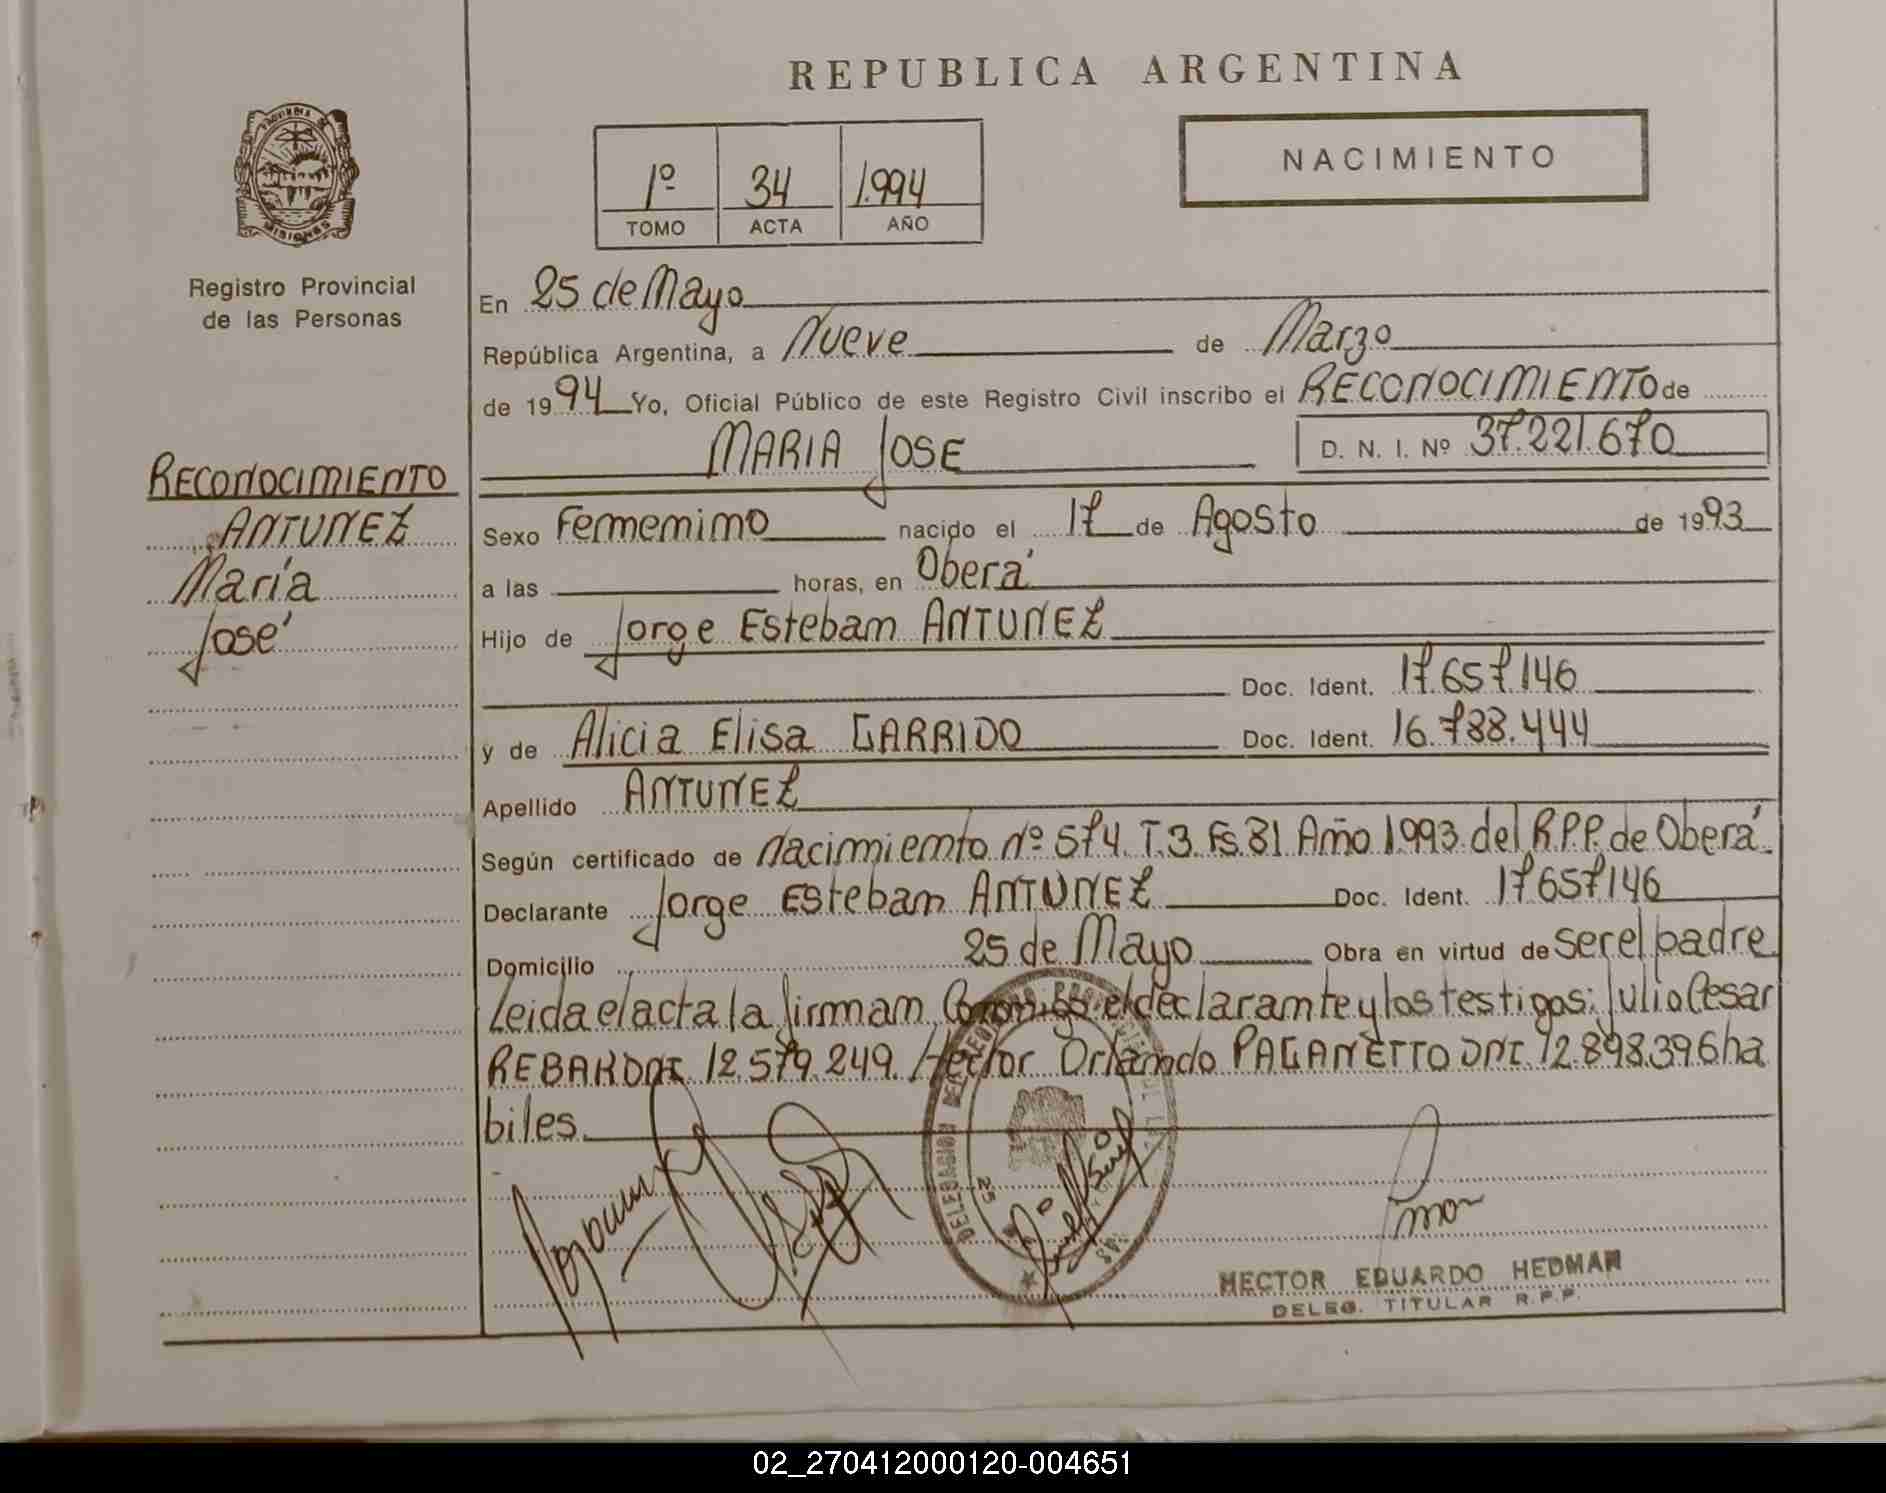 REPUBLICA ARGENTINA
NACIMIENTO
1º 34 1.994
TOMO ACTA AÑO
PROVINCIA DE
MISIONES
Registro Provincial
de las Personas
En 25 de Mayo
República Argentina, a Nueve de Marzo
de 1994 Yo, Oficial Público de este Registro Civil inscribo el RECONOCIMIENTO de
MARIA JOSE D. N. I. Nº 37.221.670
RECONOCIMIENTO
ANTUNEZ
María
José
Sexo Femenino nacido el 17 de Agosto de 1993
a las horas, en Oberá
Hijo de Jorge Esteban ANTUNEZ
Doc. Ident. 17.657.146
y de Alicia Elisa GARRIDO Doc. Ident. 16.788.444
Apellido ANTUNEZ
Según certificado de nacimiento Nº 574. T.3. Fs.81 Año 1.993 del R.P.P. de Oberá.
Declarante Jorge Esteban ANTUNEZ Doc. Ident. 17657146
Domicilio 25 de Mayo Obra en virtud de ser el padre
Leida el acta la firman Conmigo el declarante y los testigos: Julio Cesar
DNI 12.579.249. Hector Orlando PAGANETTO DNI 12.898.396 ha
biles.
HECTOR EDUARDO HEDMAN
DELEG. TITULAR R.P.P.
02_270412000120-004651